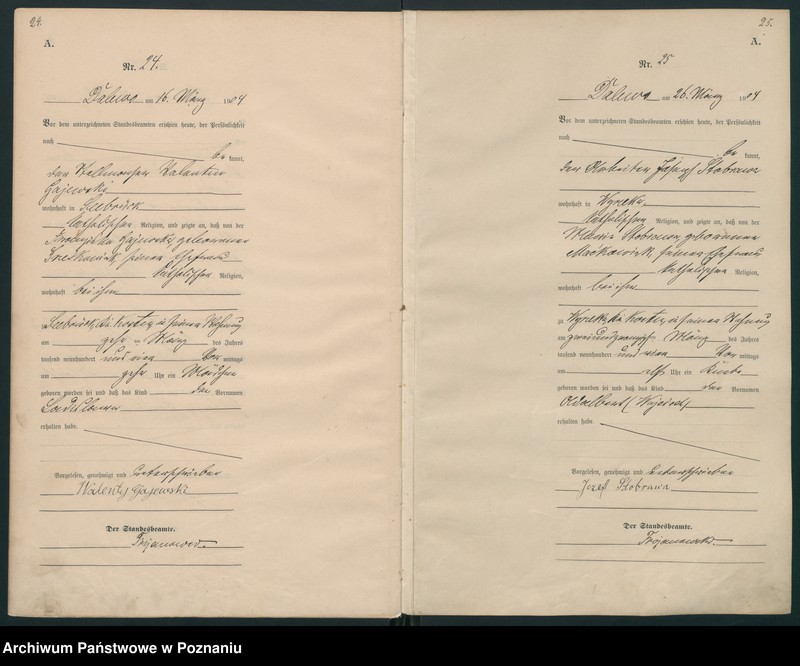 24.
A.
Nr. 24.
Dalewo am 16. März 1904
Vor dem unterzeichneten Standesbeamten erschien heute, der Persönlichkeit
nach
be kannt,
den Valentin
Gajewski
wohnhaft in Seebrück
katholischer Religion, und zeigte an, daß von der
Gajewska geborenen
seiner Ehefrau
katholischer Religion,
wohnhaft bei ihm
zu Seebrück, in seiner Wohnung
am März des Jahres
tausend neunhundert und vier Vor mittags
um Uhr ein Mädchen
geboren worden sei und daß das Kind den Vornamen
erhalten habe.
Vorgelesen, genehmigt und unterschrieben
Walenty Gajewski
Der Standesbeamte.
25.
A.
Nr. 25
Dalewo am 26. März 1904
Vor dem unterzeichneten Standesbeamten erschien heute, der Persönlichkeit
nach
be kannt,
den Arbeiter Joseph Stobrawa
wohnhaft in Wyrzeka
katholischer Religion, und zeigte an, daß von der
Maria Stobrawa geborenen
seiner Ehefrau
katholischer Religion,
wohnhaft bei ihm
zu Wyrzeka, in seiner Wohnung
am zweiundzwanzigsten März des Jahres
tausend neunhundert und vier Vor mittags
um elf Uhr ein Knabe
geboren worden sei und daß das Kind den Vornamen
Adalbert (Wojciech)
erhalten habe.
Vorgelesen, genehmigt und unterschrieben
Jozef Stobrawa
Der Standesbeamte.
Archiwum Państwowe w Poznaniu